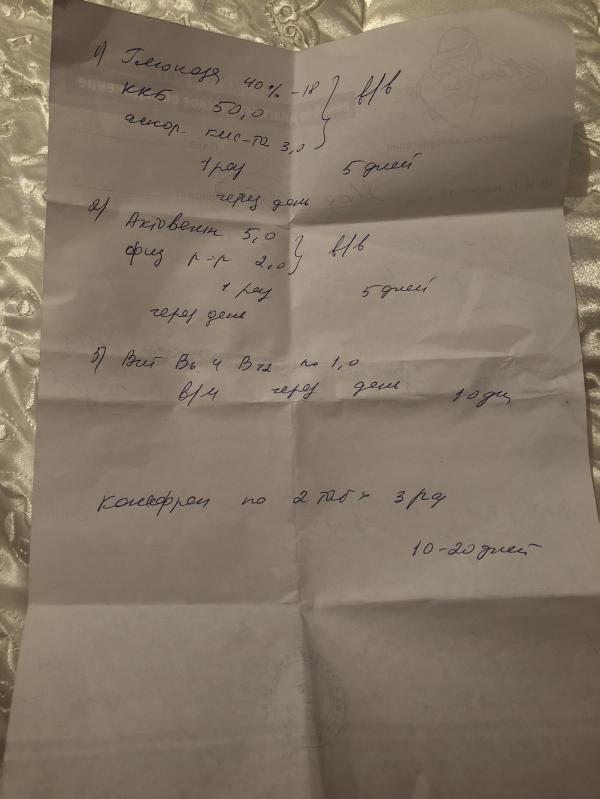 1) Глюкоза 40% - 18
ККБ 50,0
аскор. кис-та 3,0
в/в
1 раз 5 дней
через день
2) Актовегин 5,0
физ р-р 2,0
в/в
1 раз 5 дней
через день
Вит В6 и В12 по 1,0
в/м через день 10 дн
по 2 таб x 3 раз
10-20 дней